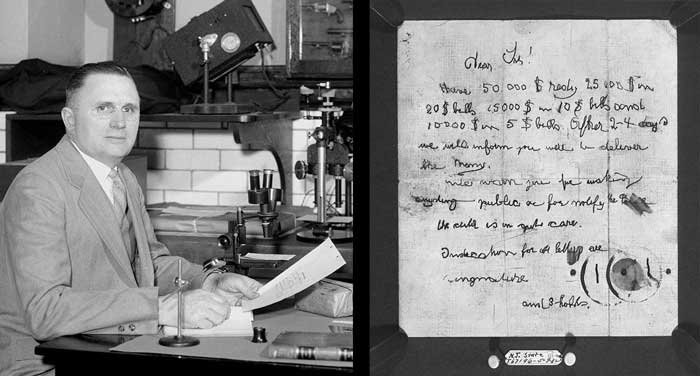 Dear Sir!
Have 50.000$ redy 25 000$ in
20$ bills 15000$ in 10$ bills and
10000$ in 5$ bills. After 2-4 days
we will inform you were to deliver
the Mony.
We warn you for making
anyding public or for notify the
the child is in gut care.
Indication for all letters are
singnature
and 3 holds.
N.J. State